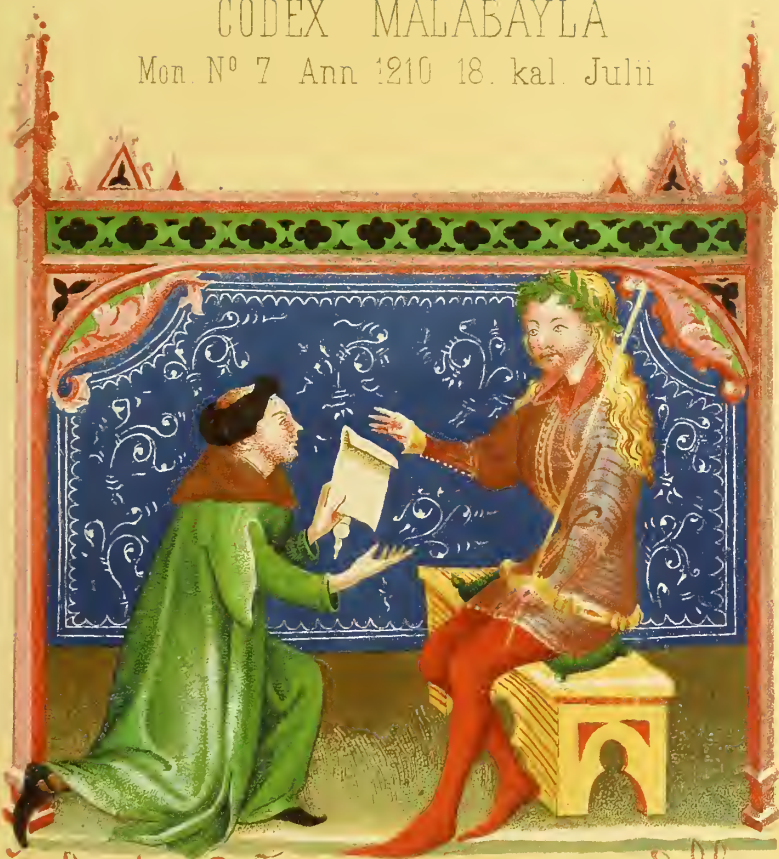 CODEX MALABAYLA
Mon. Nº 7 Ann 1210 18. kal. Julii